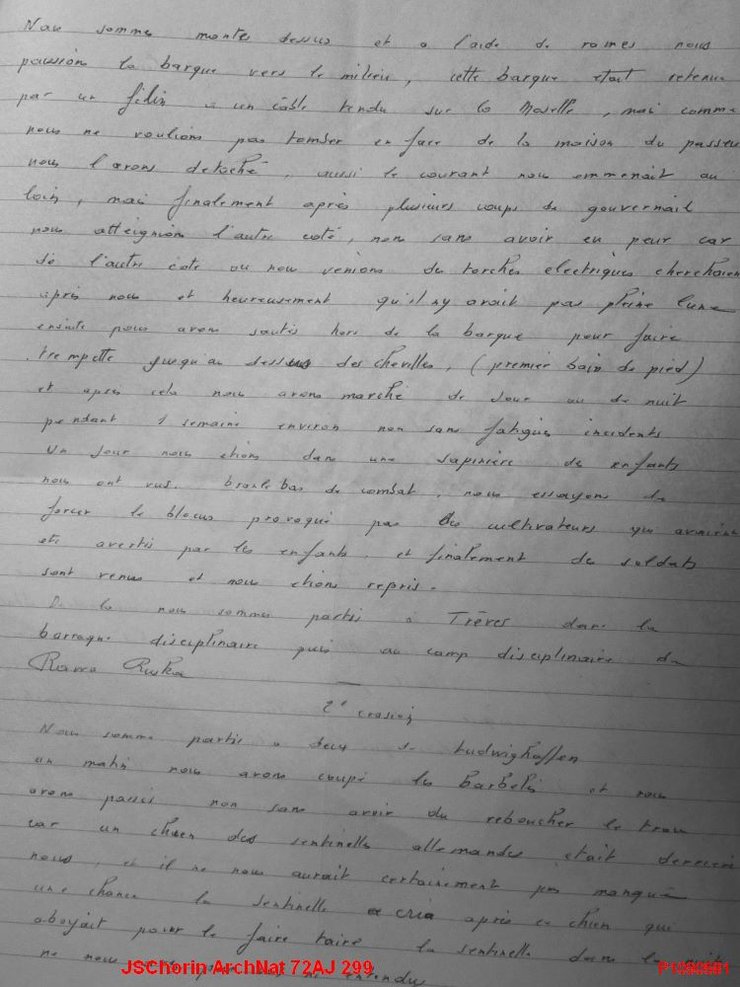 Nous sommes montés dessus et a l'aide de rames nous
poussions la barque vers le milieu, cette barque était retenue
par un filin a un câble tendu sur la Moselle, mais comme
nous ne voulions pas tomber en face de la maison du passeur
nous l'avons detaché, aussi le courant nous emmenait au
loin, mais finalement après plusieurs coups de gouvernail
nous atteignions l'autre coté, non sans avoir eu peur car
de l'autre cote ou nous venions des torches electriques cherchaient
après nous et heureusement qu'il ny avait pas pleine lune
ensuite nous avons sautés hors de la barque pour faire
trempette jusqu'au dessus des chevilles, (premier bain de pied)
et après cela nous avons marché de jour ou de nuit
pendant 1 semaine environ non sans fatigues incidents
un jour nous etions dans une sapinière des enfants
nous ont vus. branle bas de combat, nous essayons de
forcer le blocus provoqué par les cultivateurs qui avaient
ete avertis par les enfants, et finalement des soldats
sont venus et nous etions repris.
De la nous sommes partis a Trèves dans la
barraque disciplinaire puis au camp disciplinaire de
Rawa Ruska
2e evasion
Nous somme partis a deux de Ludwighaffen
un matin nous avons coupé les barbelés et nous
avons passés non sans avoir du reboucher le trou
car un chien des sentinelles allemandes etait derriere
nous, et il ne nous aurait certainement pas manqué
une chance la sentinelle cria après ce chien qui
aboyait pour le faire taire la sentinelle dans la nuit
ne nous ni entendu
JSChorin ArchNat 72AJ 299